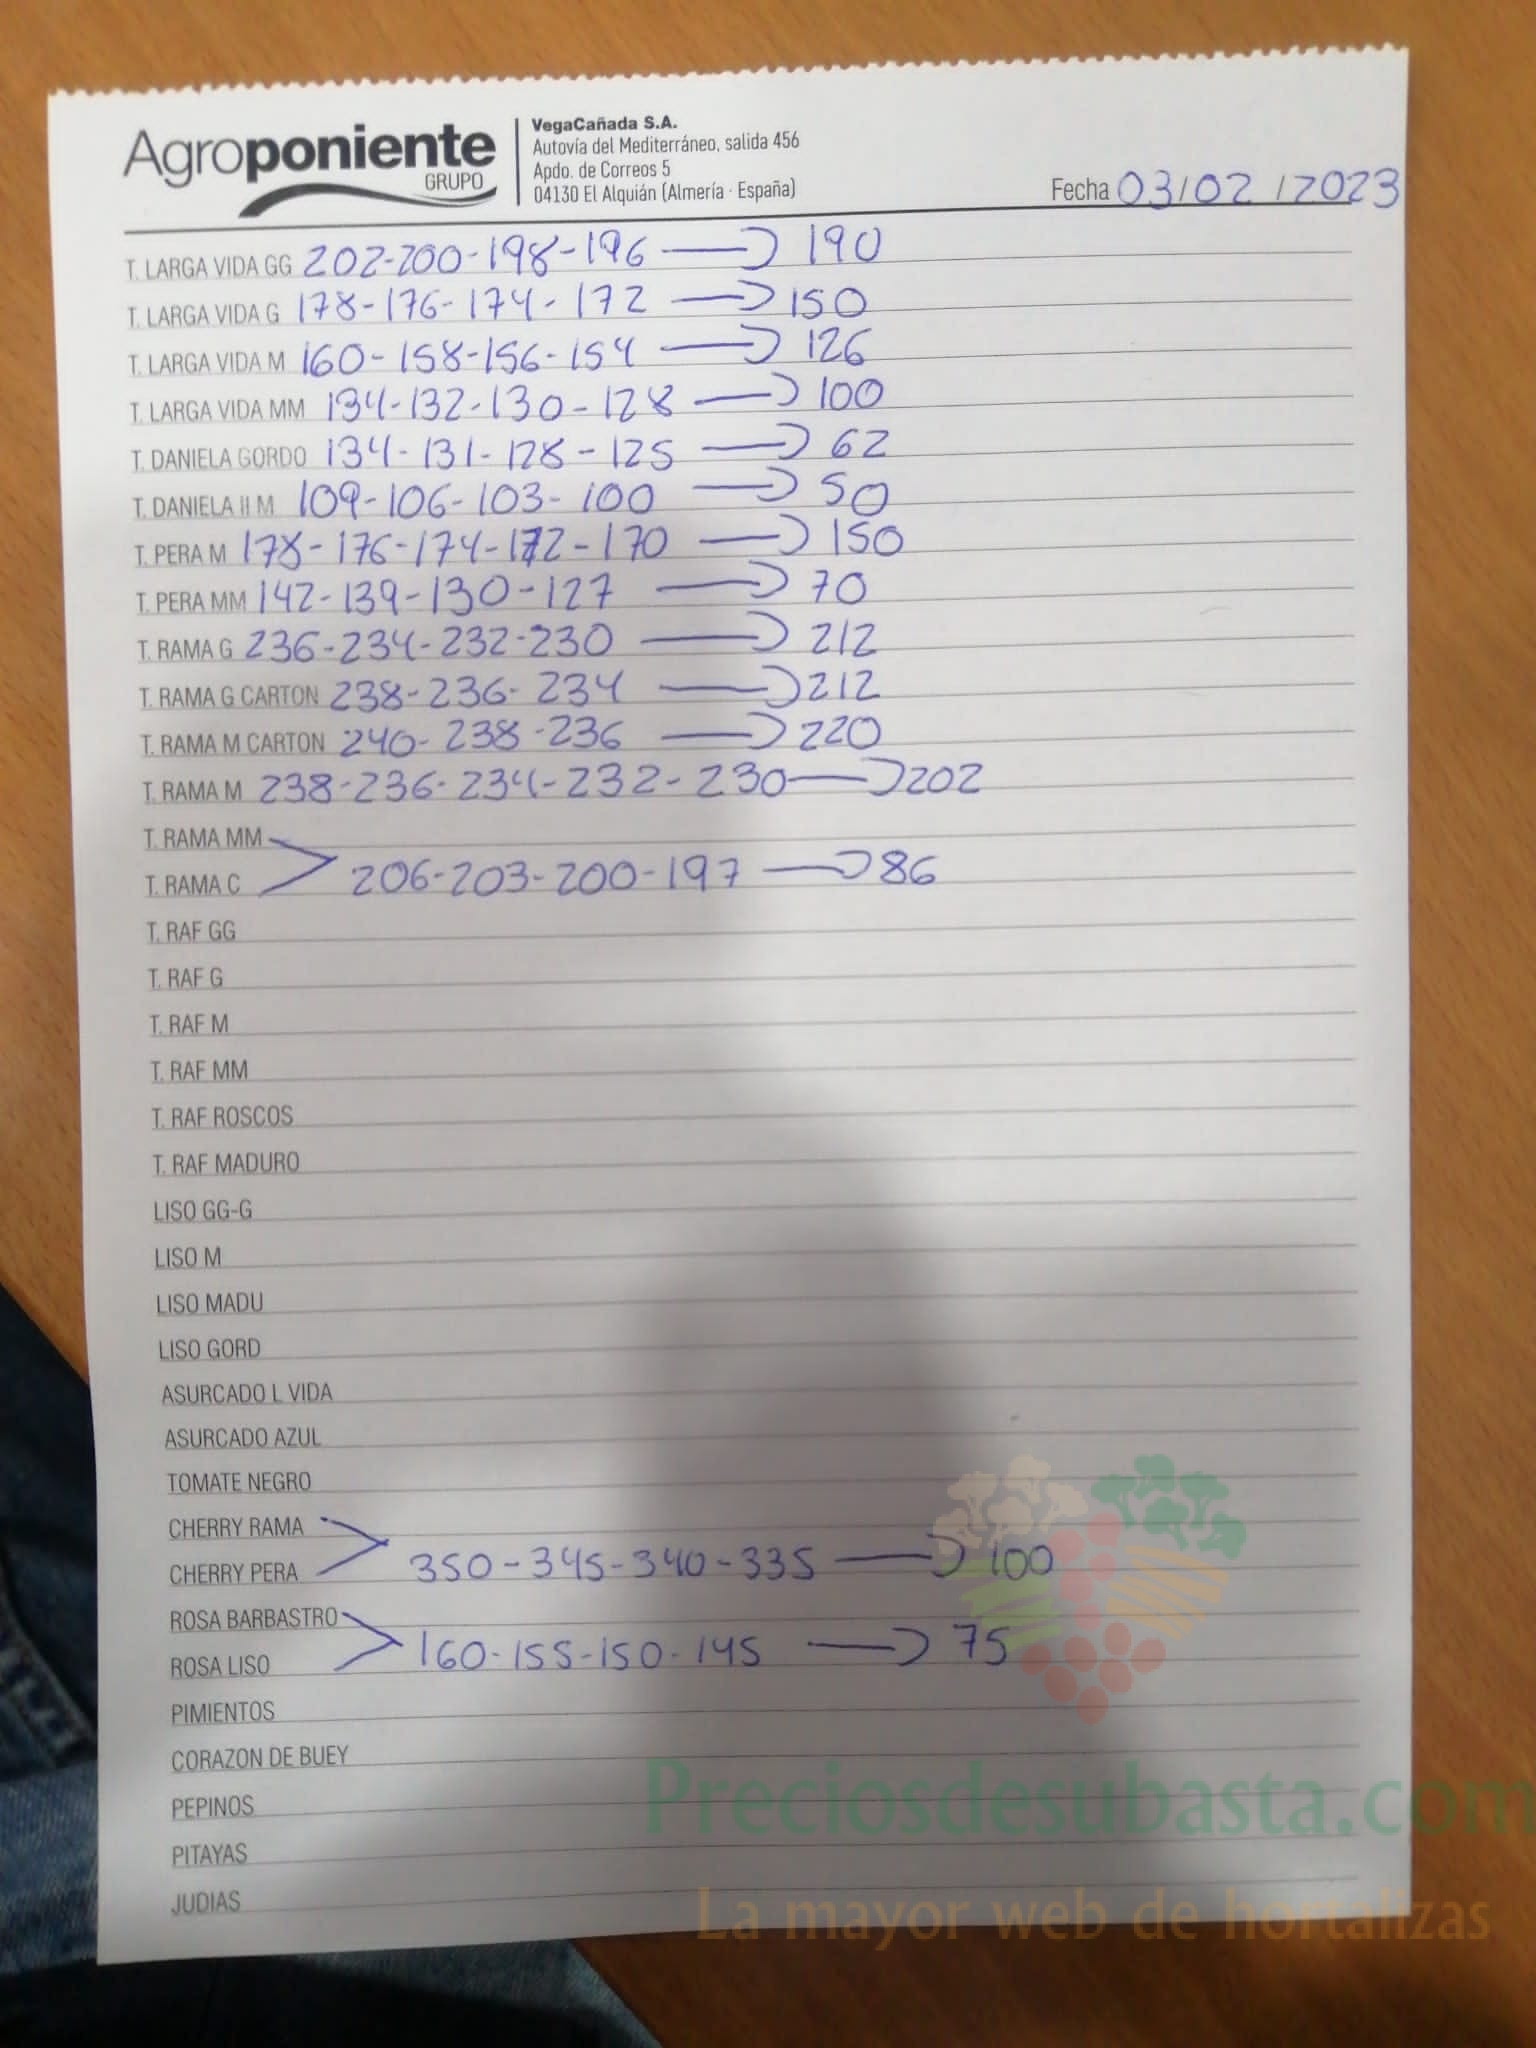 Agroponiente
GRUPO
VegaCañada S.A.
Autovía del Mediterráneo, salida 456
Apdo. de Correos 5
04130 El Alquián (Almería · España)
Fecha 03/02/2023
T. LARGA VIDA GG 202-200-198-196 → 190
T. LARGA VIDA G 178-176-174-172 → 150
T. LARGA VIDA M 160-158-156-154 → 126
T. LARGA VIDA MM 134-132-130-128 → 100
T. DANIELA GORDO 134-131-128-125 → 62
T. DANIELA II M 109-106-103-100 → 50
T. PERA M 178-176-174-172-170 → 150
T. PERA MM 142-139-130-127 → 70
T. RAMA G 236-234-232-230 → 212
T. RAMA G CARTON 238-236-234 → 212
T. RAMA M CARTON 240-238-236 → 220
T. RAMA M 238-236-234-232-230 → 202
T. RAMA MM
T. RAMA C 206-203-200-197 → 86
T. RAF GG
T. RAF G
T. RAF M
T. RAF MM
T. RAF ROSCOS
T. RAF MADURO
LISO GG-G
LISO M
LISO MADU
LISO GORD
ASURCADO L VIDA
ASURCADO AZUL
TOMATE NEGRO
CHERRY RAMA
CHERRY PERA 350-345-340-335 → 100
ROSA BARBASTRO
ROSA LISO 160-155-150-145 → 75
PIMIENTOS
CORAZON DE BUEY
PEPINOS
PITAYAS
JUDIAS
Preciosdesubasta.com
La mayor web de hortalizas